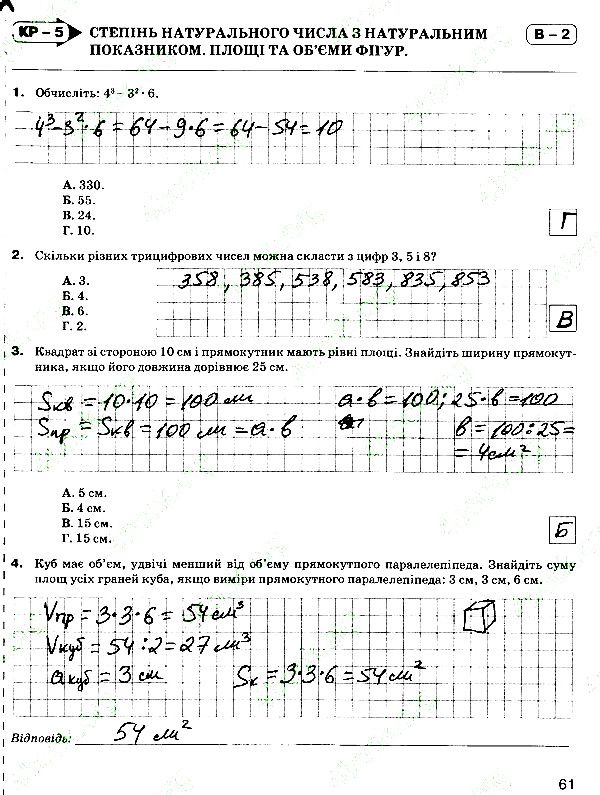 КР – 5
СТЕПІНЬ НАТУРАЛЬНОГО ЧИСЛА З НАТУРАЛЬНИМ
ПОКАЗНИКОМ. ПЛОЩІ ТА ОБ'ЄМИ ФІГУР.
В – 2
1. Обчисліть: 4³ – 3² · 6.
4³-3²·6=64-9·6=64-54=10
А. 330.
Б. 55.
В. 24.
Г. 10.
Г
2. Скільки різних трицифрових чисел можна скласти з цифр 3, 5 і 8?
358, 385, 538, 583, 835, 853
А. 3.
Б. 4.
В. 6.
Г. 2.
В
3. Квадрат зі стороною 10 см і прямокутник мають рівні площі. Знайдіть ширину прямокут-
ника, якщо його довжина дорівнює 25 см.
Sкв = 10·10 = 100 см
a·в = 100; 25·в = 100
Sпр = Sкв = 100 см = a·в
в = 100:25 =
= 4см²
А. 5 см.
Б. 4 см.
В. 15 см.
Г. 15 см.
Б
4. Куб має об'єм, удвічі менший від об'єму прямокутного паралелепіпеда. Знайдіть суму
площ усіх граней куба, якщо виміри прямокутного паралелепіпеда: 3 см, 3 см, 6 см.
Vпр = 3·3·6 = 54 см³
Vкуб = 54:2 = 27 см³
aкуб = 3 см
Sк = 3·3·6 = 54 см²
Відповідь: 54 см²
61